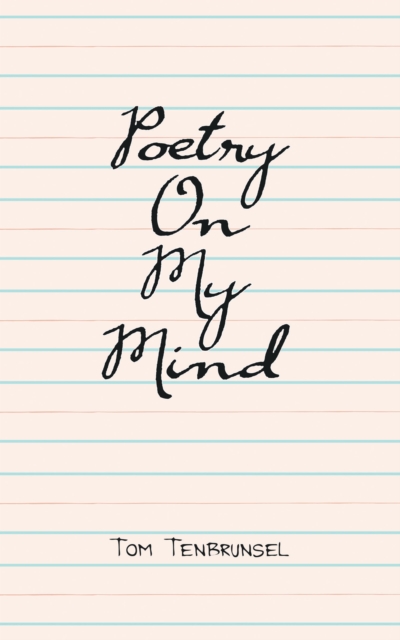 Poetry
On
My
Mind
TOM TENBRUNSEL